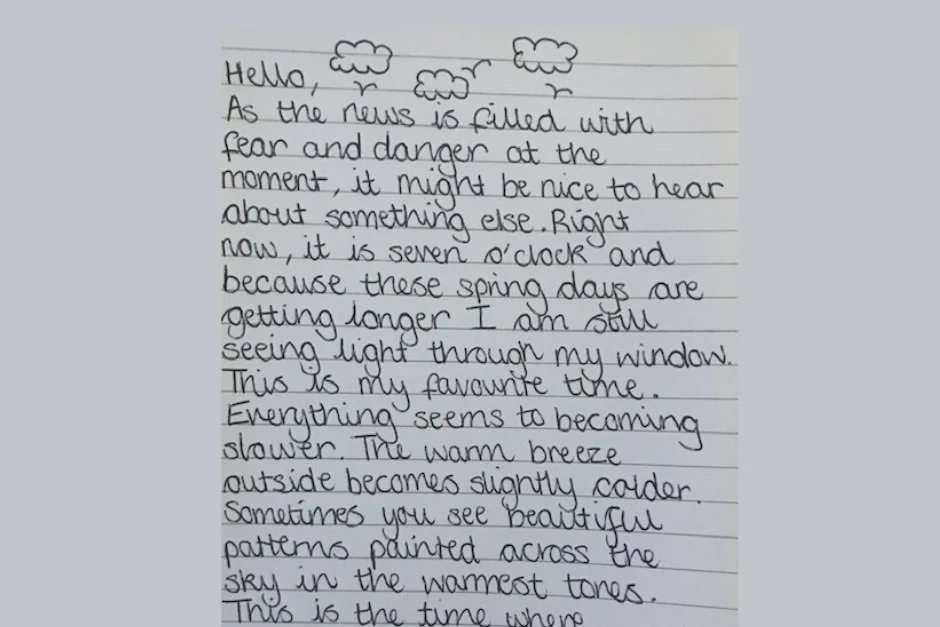 Hello,
As the news is filled with
fear and danger at the
moment, it might be nice to hear
about something else. Right
now, it is seven o'clock and
because these spring days are
getting longer I am still
seeing light through my window.
This is my favourite time.
Everything seems to becoming
slower. The warm breeze
outside becomes slightly colder.
Sometimes you see beautiful
patterns painted across the
sky in the warmest tones.
This is the time where